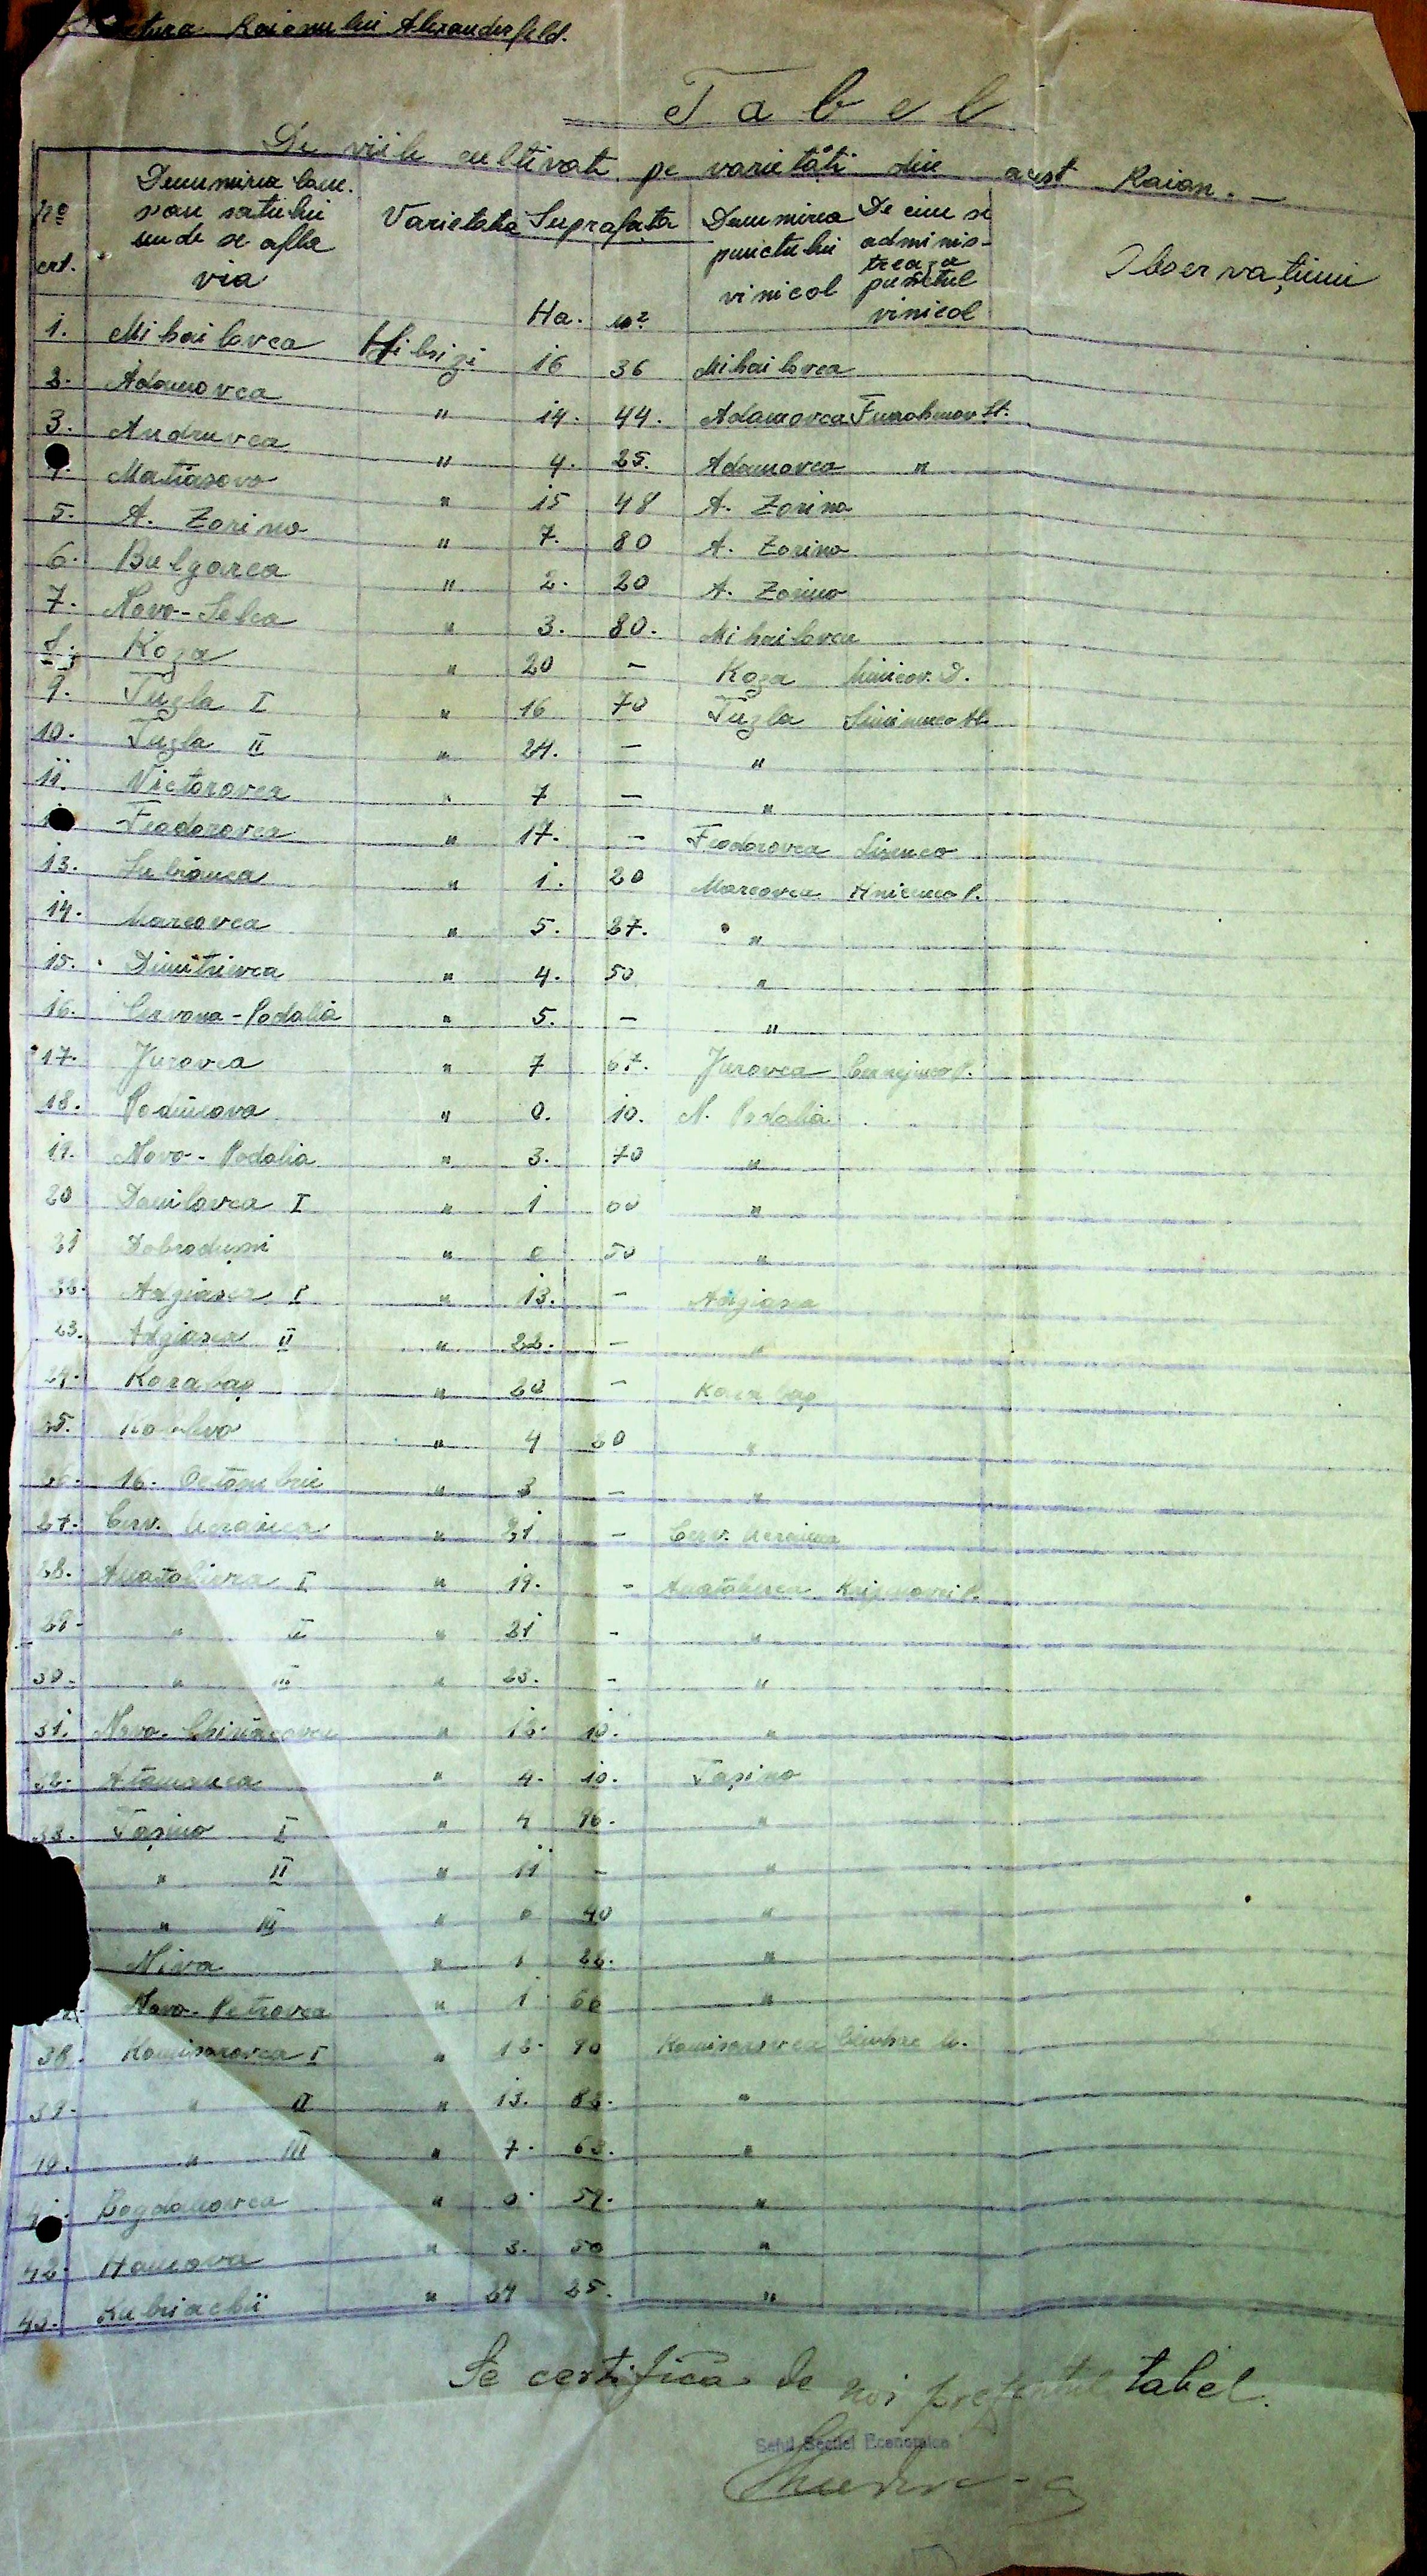 Raionului Alexanderfeld.
Tabel
De viile cultivate pe varietăți din acest Raion. —
No crt. Denumirea com. sau satului unde se afla via Varietatea Suprafața Ha. m² Denumirea punctului vinicol De cine se adminis-treaza punctul vinicol Observațiuni
1. Mihailovca Hibrizi 16 36 Mihailovca
2. Adamovca " 14. 44. Adamovca St.
3. Andruvca " 4. 25. Adamovca "
4. Matiasovo " 15 48 A. Zorino
5. A. Zorino " 7. 80 A. Zorino
6. Bulgarca " 2. 20 A. Zorino
7. Novo-Selca " 3. 80. Mihailovca
8. Koza " 20 — Koza D.
9. Tuzla I " 16 70 Tuzla
10. Tuzla II " 24. — "
11. Victorovca " 7 — "
Feodorovca " 17. — Feodorovca Lisenco
13. " 1. 20 Marcovca P.
14. Marcovca " 5. 27. "
15. Dimitrievca " 4. 50 "
16. Cervona-Podalia " 5. — "
17. Jurovca " 7 67. Jurovca P.
18. " 0. 10. N. Podalia
19. Novo-Podalia " 3. 70 "
20 Danilovca I " 1 00 "
21 " 0 50 "
22. Adgiasca I " 13. - Adgiasca
23. Adgiasca II " 22. — "
24. Karabaș " 20 - Karabaș
25. " 4 20 "
26. 16. Octombrie " 3 - "
27. Cerv. Ucrainca " 21 - Cerv. Ucrainca
28. Anatolievca I " 19. - Anatolievca P.
29. " II " 21 - "
30. " III " 23. - "
31. Novo- " 10. "
32. Atamanca " 4. 10. Tașino
33. Tașino I " 4 "
" II " 11 — "
" III " 0 40 "
Niva " "
Novo-Petrovca " 1 60 "
38. Komisarovca I " 90 Komisarovca
39. " II " 13. "
40. " III " 7. 63. "
Bogdanovca " 0 "
42. " 3. 50 "
43. " 24 25. "
Se certifică de noi prezentul tabel.
Seful Secției Economice